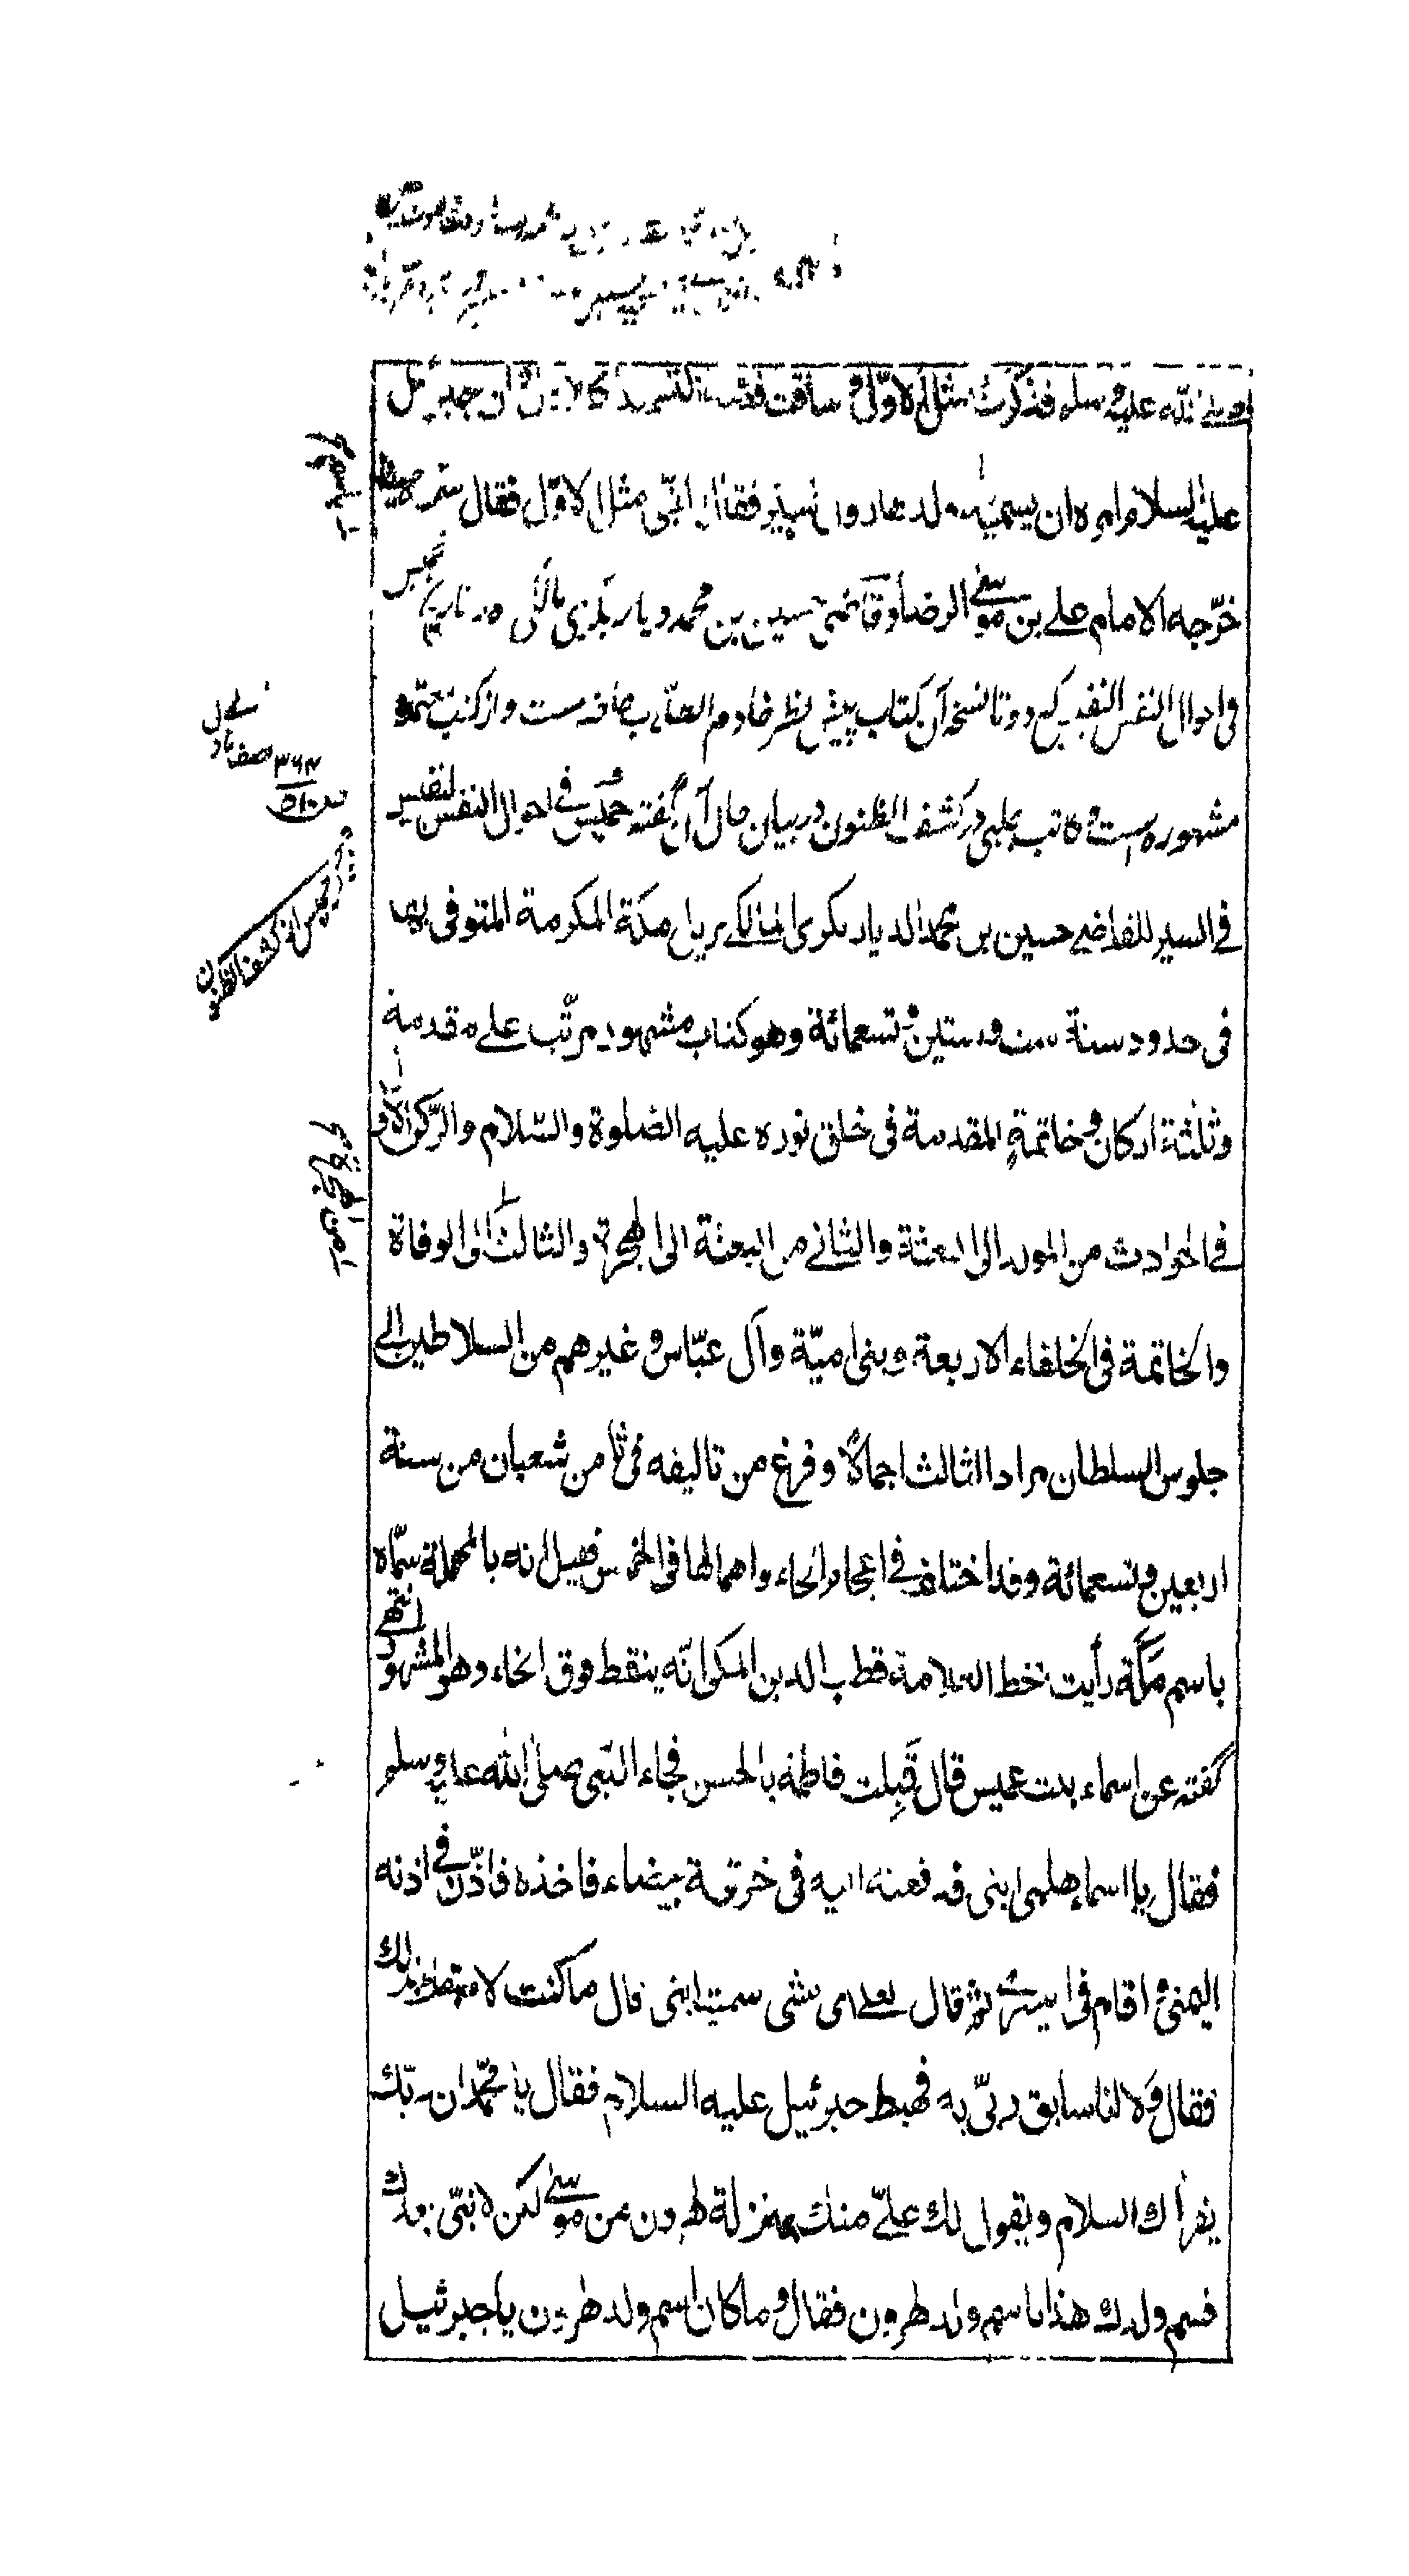 الله عليه وسلم فذكرت مثل الاوّل وساقت قصة التسمية كالاول وان جبرئيل
عليه السلام امره ان يسميه بولد هارون شبير فقال النبي مثل الاوّل فقال سمه حسينا
خرّجه الامام علي بن موسى الرضا وقاضى حسين بن محمد ديار بكرى مالكى در تاريخ خميس
فى احوال النفس النفيس كه دو تا نسخه آن كتاب پيش نظر خادم الطلاب حاضرست واز كتب معتمده
مشهوره است وكاتب چلبى در كشف الظنون در بيان حال آن گفته خميس فى احوال النفس النفيس
فى السير للقاضى حسين بن محمد الديار بكرى المالكى نزيل مكة المكرمة المتوفى بها
فى حدود سنة ست وستين وتسعمائة وهو كتاب مشهور مرتّب على مقدمة
وثلثة اركان وخاتمةٍ المقدمة فى خلق نوره عليه الصلوة والسّلام والرّكن الاوّل
فى الحوادث من المولد الى البعثة والثانى من البعثة الى الهجرة والثالث الى الوفاة
والخاتمة فى الخلفاء الاربعة وبنى اميّة وآل عبّاس وغيرهم من السلاطين الى
جلوس السلطان مراد الثالث اجمالا وفرغ من تاليفه فى ثامن شعبان من سنة
اربعين وتسعمائة وقد اختلف فى اعجام الخاء واهمالها فى الخميس فقيل انه بالمهملة سمّاه
باسم مكّة رأيت بخط العلامة قطب الدين المكى انّه ينقط فوق الخاء وهو المشهور انتهى
گفته عن اسماء بنت عميس قال قَبِلت فاطمة بالحسن فجاء النّبى صلى الله عليه وسلم
فقال يا اسماء هلمى ابنى فدفعته اليه فى خرقة بيضاء فاخذه فاذّن فى اذنه
اليمنى واقام فى اليسرى ثم قال لعلى اى شى سميت ابنى قال ما كنت لاسبقك بذلك
فقال ولا انا سابق ربّى به فهبط جبرئيل عليه السلام فقال يا محمّد ان ربّك
يقرأك السلام ويقول لك علىّ منك بمنزلة هرون من موسى لكن لا نبىّ بعدك
فسم ولدك هذا باسم ولد هرون فقال وما كان اسم ولد هرون يا جبرئيل
خميس از كشف الظنون
من الهجرة